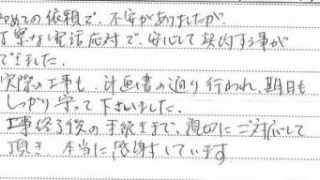 初めての依頼で、不安がありましたが
丁寧な電話応対で、安心して契約する事が
できました。
実際の工事も、計画書の通り行われ、期日も
しっかり守って下さいました。
工事終了後の手続きまで、親切にご対応して
頂き 本当に感謝しています